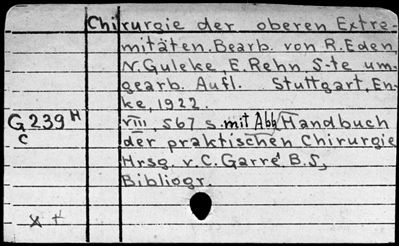 Chirurgie der oberen Extre-
mitäten. Bearb. von R. Eden,
N. Guleke, E. Rehn, 5-te um-
gearb. Aufl. Stuttgart, En-
ke, 1922.
G 239 H VIII, 567 s. mit Abb. (Handbuch
C der praktischen Chirurgie
Hrsg. v. C. Garré B. 5,
Bibliogr.